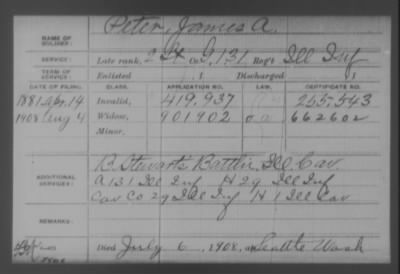 NAME OF SOLDIER: Peter, James A.
SERVICE: Late rank, 2 Lt. Co. G, 131 Reg't Ill Inf
TERM OF SERVICE: Enlisted , 1 Discharged , 1
DATE OF FILING. CLASS. APPLICATION NO. LAW. CERTIFICATE NO.
1881 Apr. 14 Invalid, 419,937 265,543
1908 Aug 4 Widow, 901902 662602
Minor,
ADDITIONAL SERVICES: B Stewarts Battln, Ill. Cav.
A 131 Ill Inf H 29 Ill Inf
Cav Co 29 Ill Inf H 1 Ill Cav
REMARKS:
Died July 6, 1908, at Seattle Wash